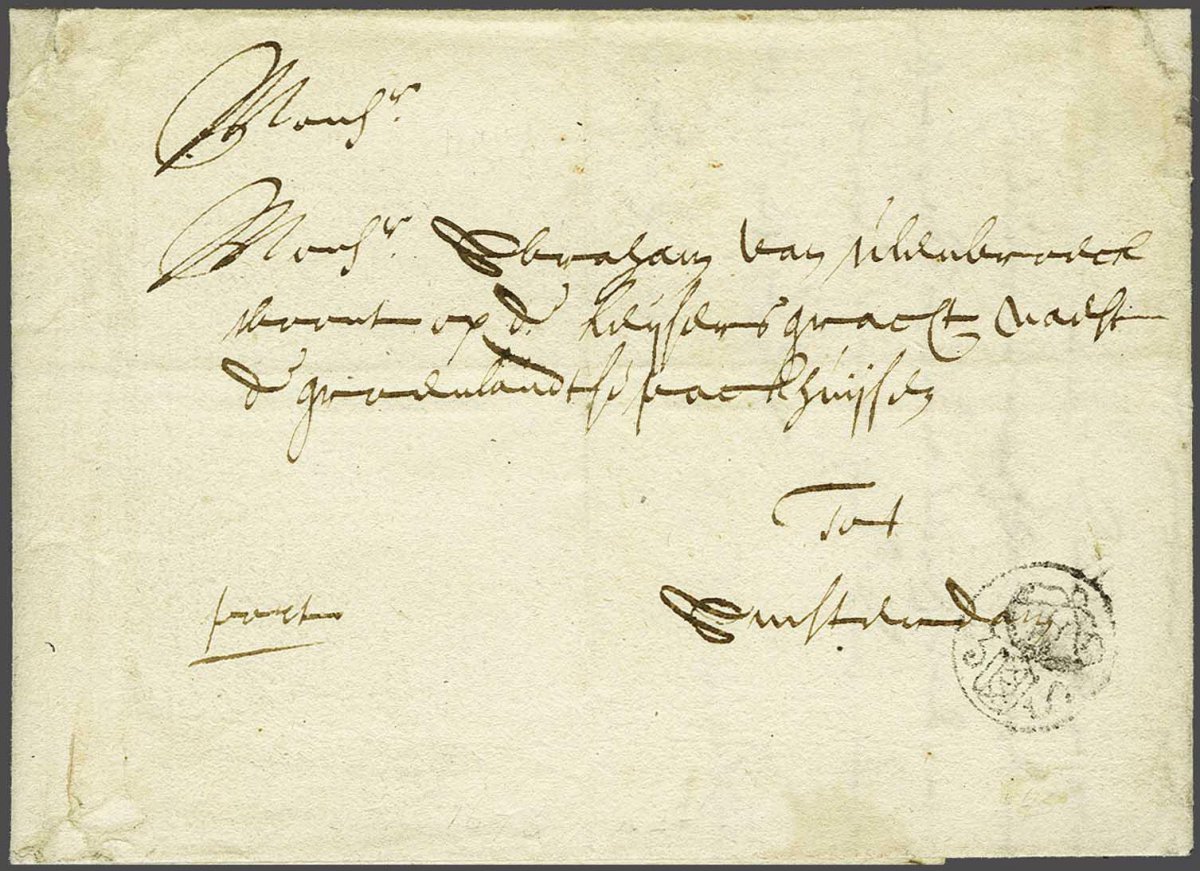 Monsr
Monsr Abraham van Uilenbroeck
woont op de keijsersgracht naest
de groenlandtse packhuijsen
Tot
port
Amsterdam